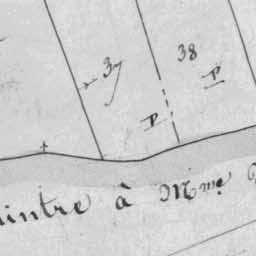 38
37
P
P
intre à Mme